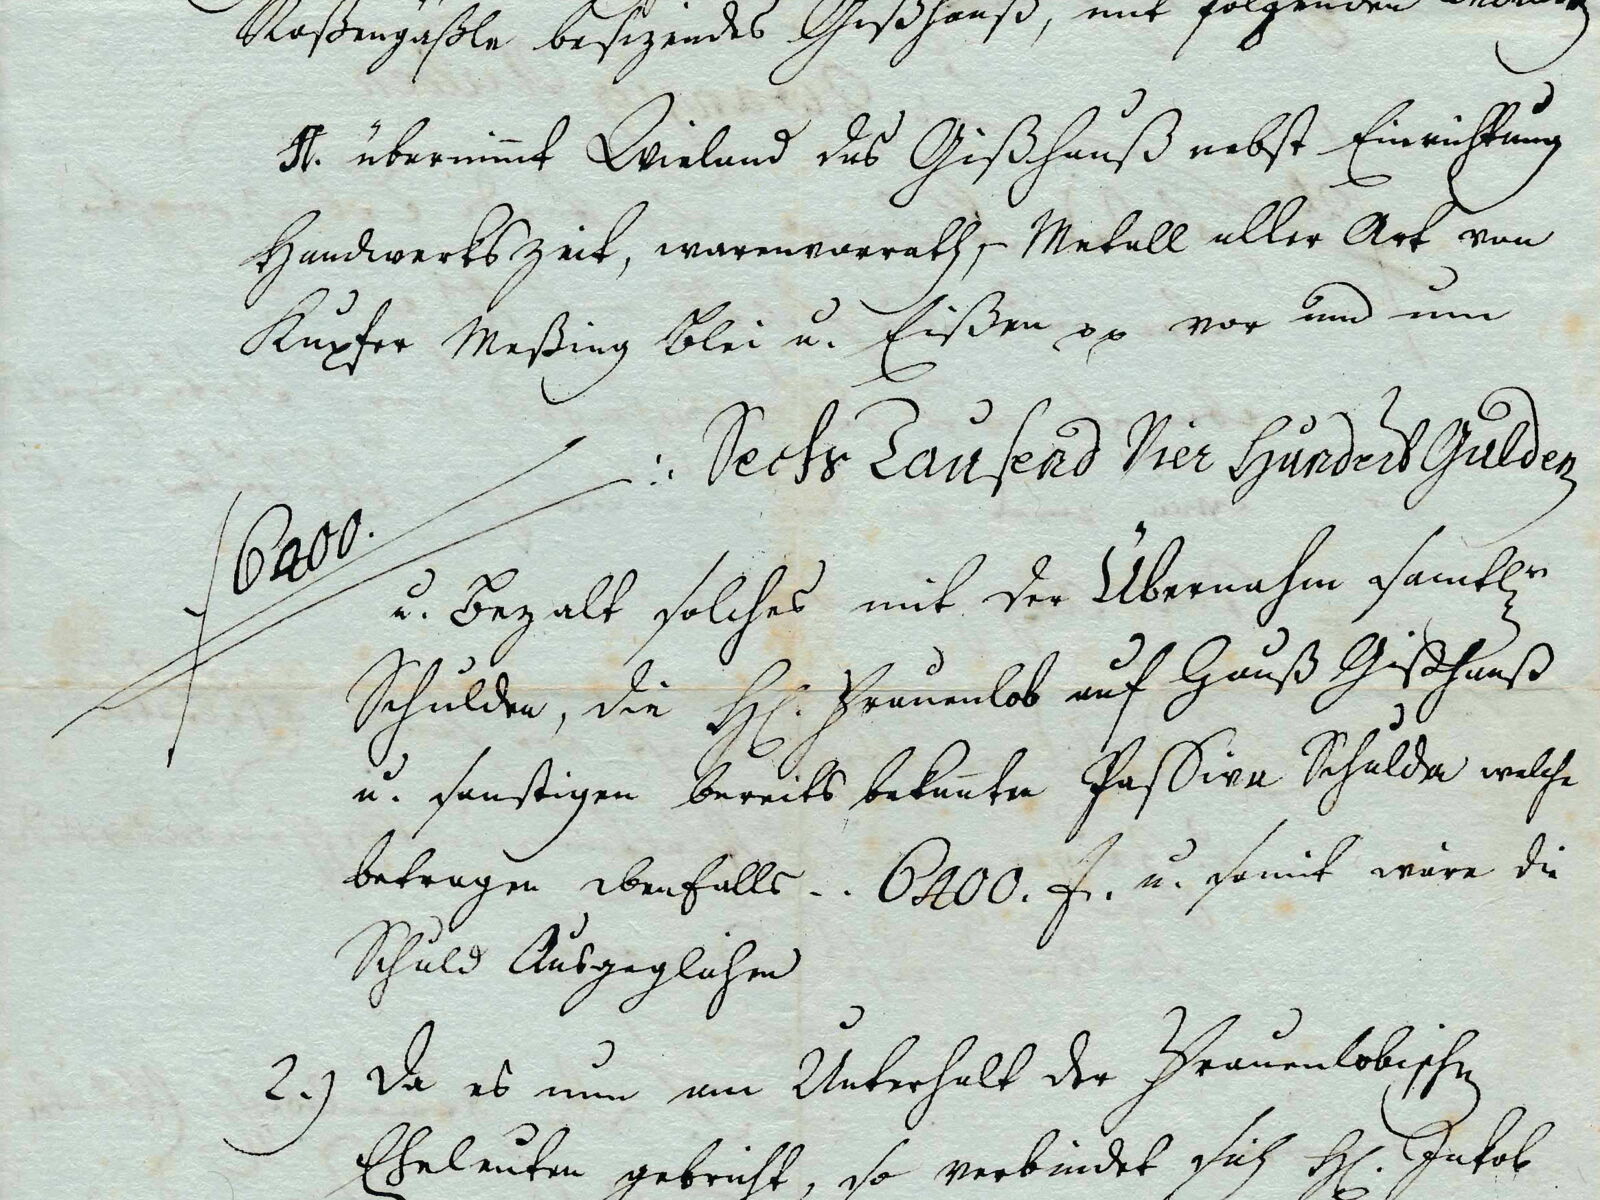 Roßengäßle besizendes Gißhauß, mit folgenden
A. übernimmt Wieland das Gißhauß nebst Einrichtung
Handwerkszeit, warenvorrath, – Metall aller Art von
Kupfer Meßing Blei u. Eißen pp vor und um
:. Sechs Tausend Vier Hundert Gulden
6400.
u. Bezalt solches mit der Übernahm samtlr
Schulden, die H. Frauenlob auf Hauß Gißhauß
u. sonstigen bereits bekannten Passiva Schulden welche
betragen ebenfalls - . 6400. f. u. somit wäre die
Schuld Ausgeglichen
2.) Da es nun am Unterhalt der Frauenlobischen
Eheleuten gebricht, so verbindet sich H. Jakob